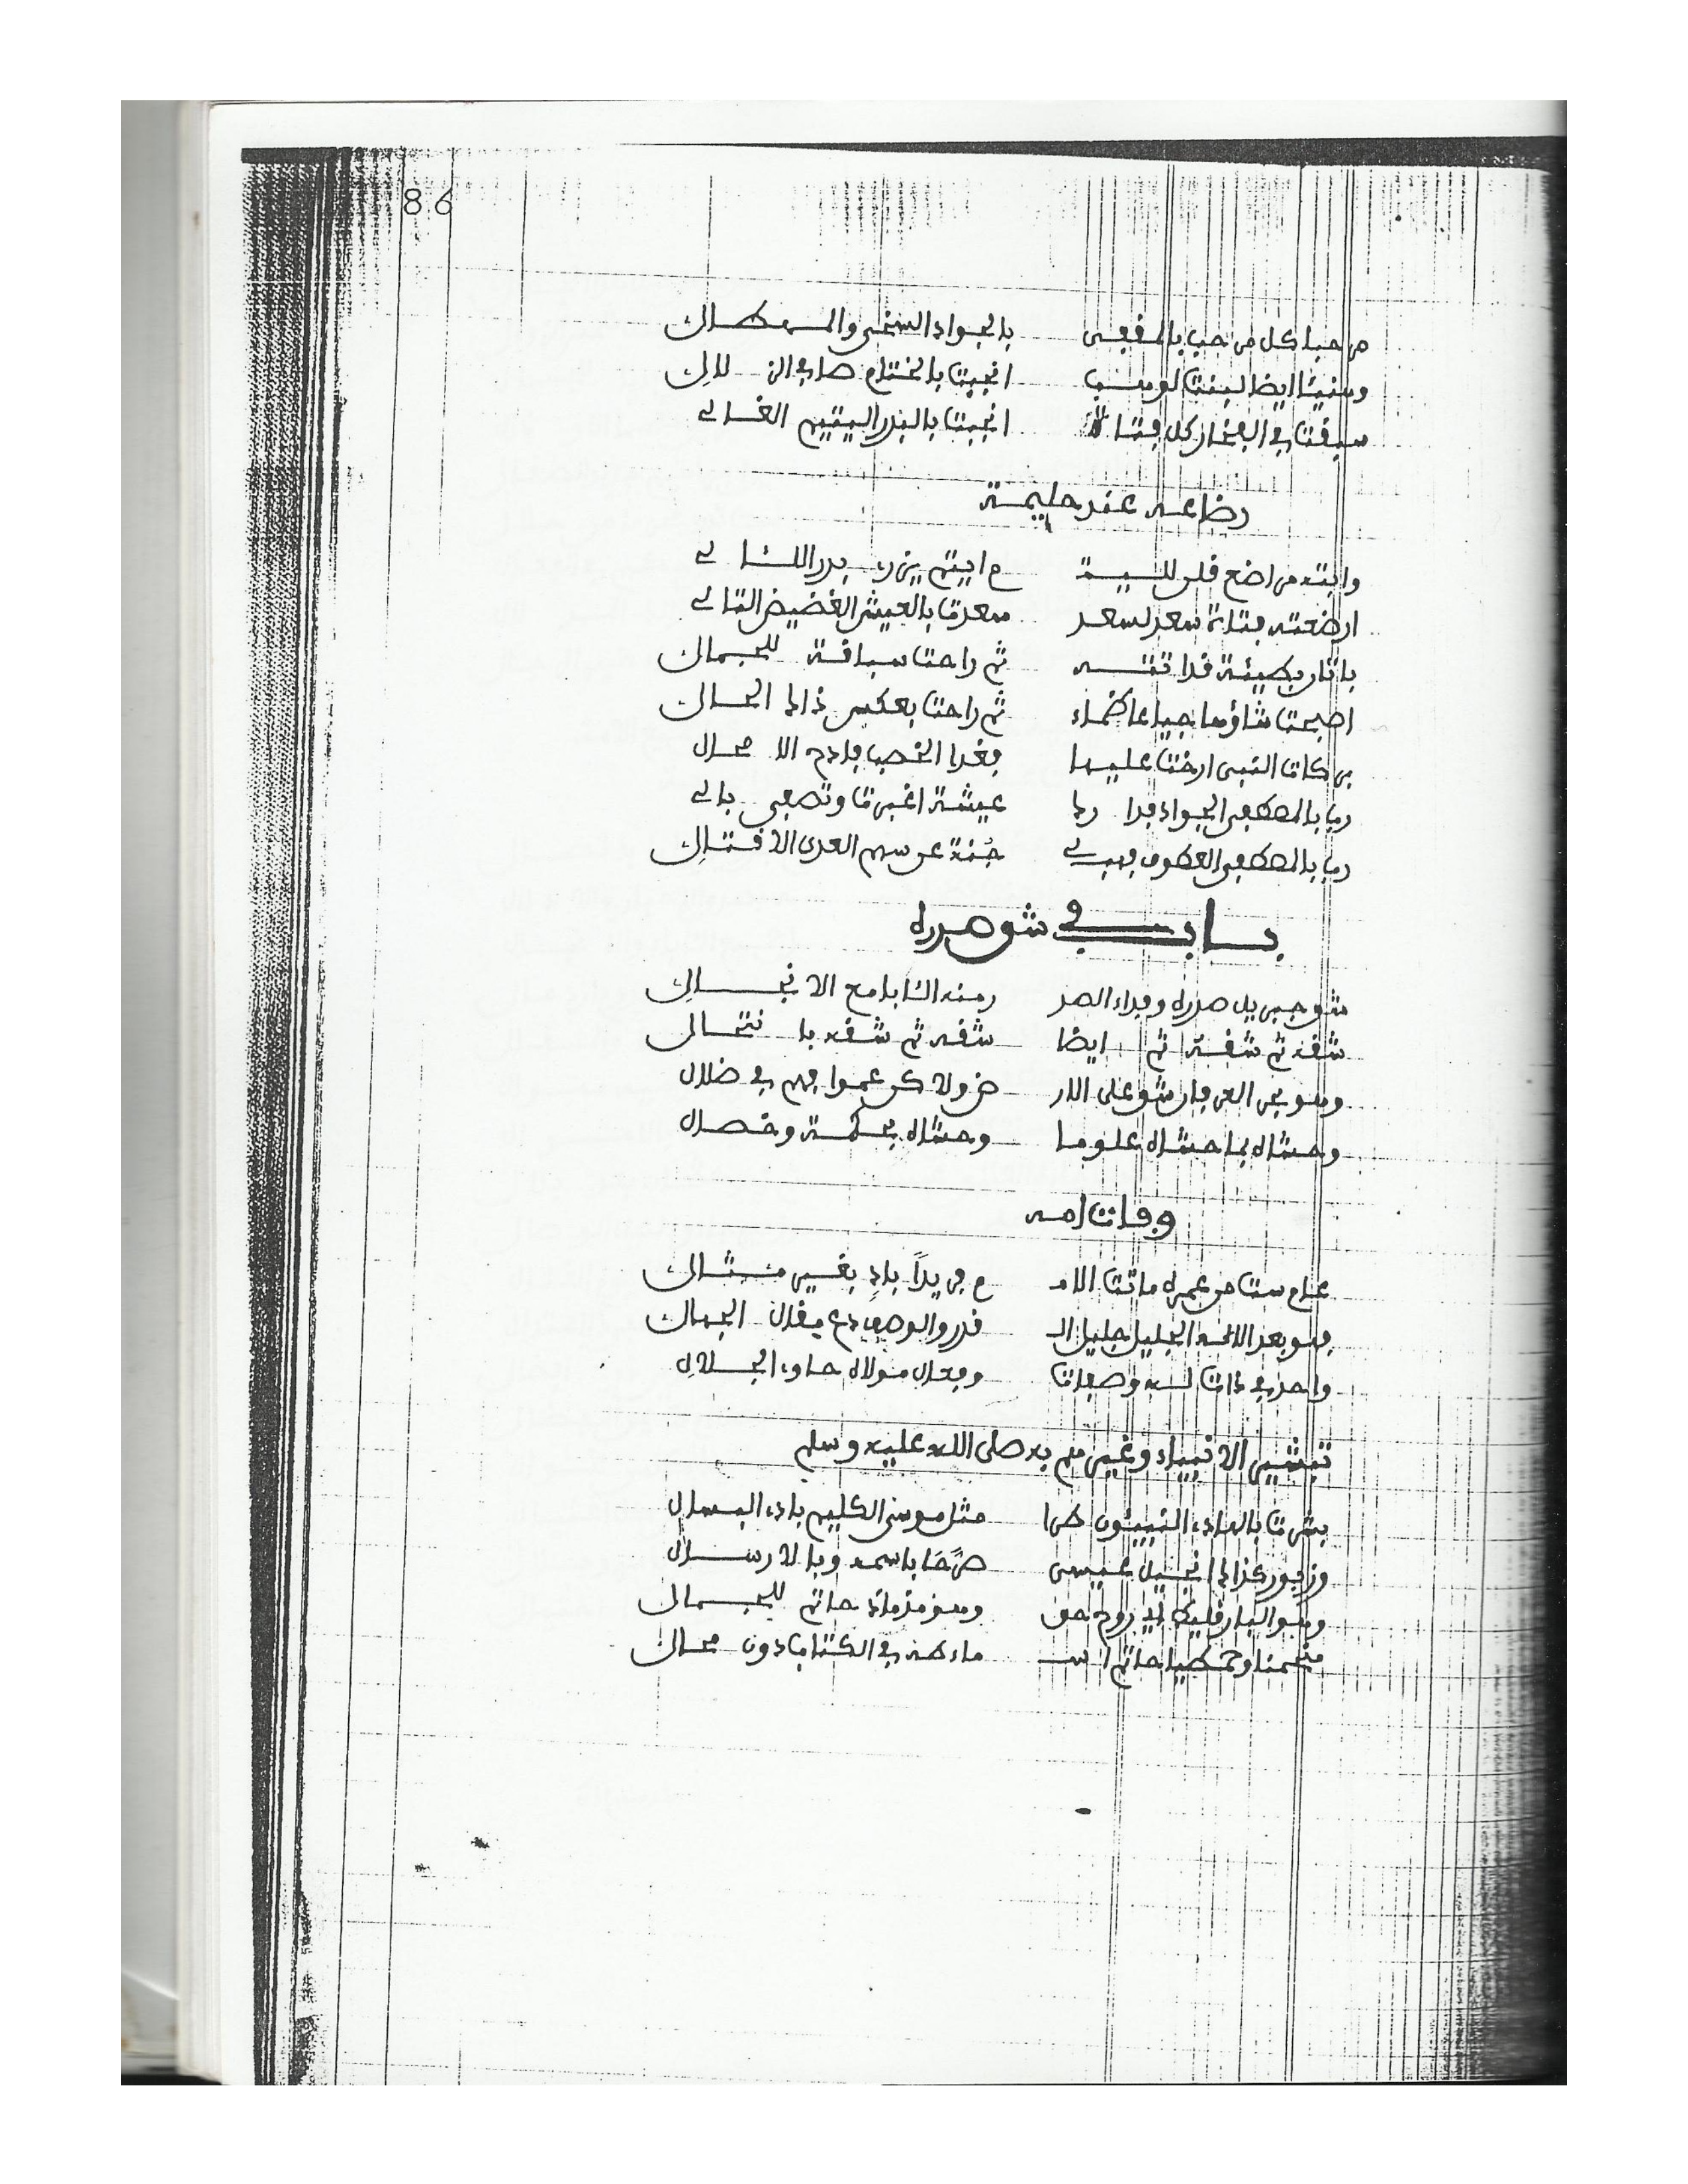 86
مرحبا كل مرحب بالمقفى بالجواد السخي والمعطال
وهنيئا ايضا لبنت لوهب انجبت بالختام هادي الن لال
سبقت في الفخار كل فتاة انجبت بالبدر اليتيم الغالي
رضاعه عند حليمة
وابته مراضع قلن لليت م ايتم يزري بدر اللئالي
ارضعته فتاة سعد لسعد سعدت بالعيش الغضيض التالي
باتان بطيئة قد اتته ثم راحت سباقة للجمال
اصبحت شاؤها جياعا ظماء ثم راحت بعكس ذاك الحال
بركات النبي ارخت عليها فغدا الخصب فادح الا محال
رب بالمصطفى الجواد فدا رك عيشة اغبرت وتصفي بالي
رب بالمصطفى العطوف فهب لي جُنة عن سهم العدى الاقتال
باب في شق صدره
شق جبريل صدره وفداء الصد ر منه الثابا مع الا نجال
شقه ثم شقة ثم ايضا شقه ثم شقه با نتحال
وهو بحر العرفان شق على الار ض ولا كن عموا فهم في ضلال
وحشاه بما حشاه علوما وحشاه بحكمة وخصال
وفات امه
عام ست من عمره ماتت الام م فريداً بادٍ بغير مثال
فهو بعد الاله الجليل جليل ال قدر والوصف دع مقال الجهال
واحد في ذات له وصفات وفعال مولاه حاوي الجلال
تبشير الانبياء وغيرهم به صلى الله عليه وسلم
بشرت بالهادي النبيئون طرا مثل موسى الكليم بادي البهال
وزبور كذاك انجيل عيسى صرَّحَا باسمه وبالارسال
وهو البارقليط اي روح حق وهو مذماذ حاتم للجمال
منحمنا وحمطيا حاتم اس ماء طه في الكتاب دون محال